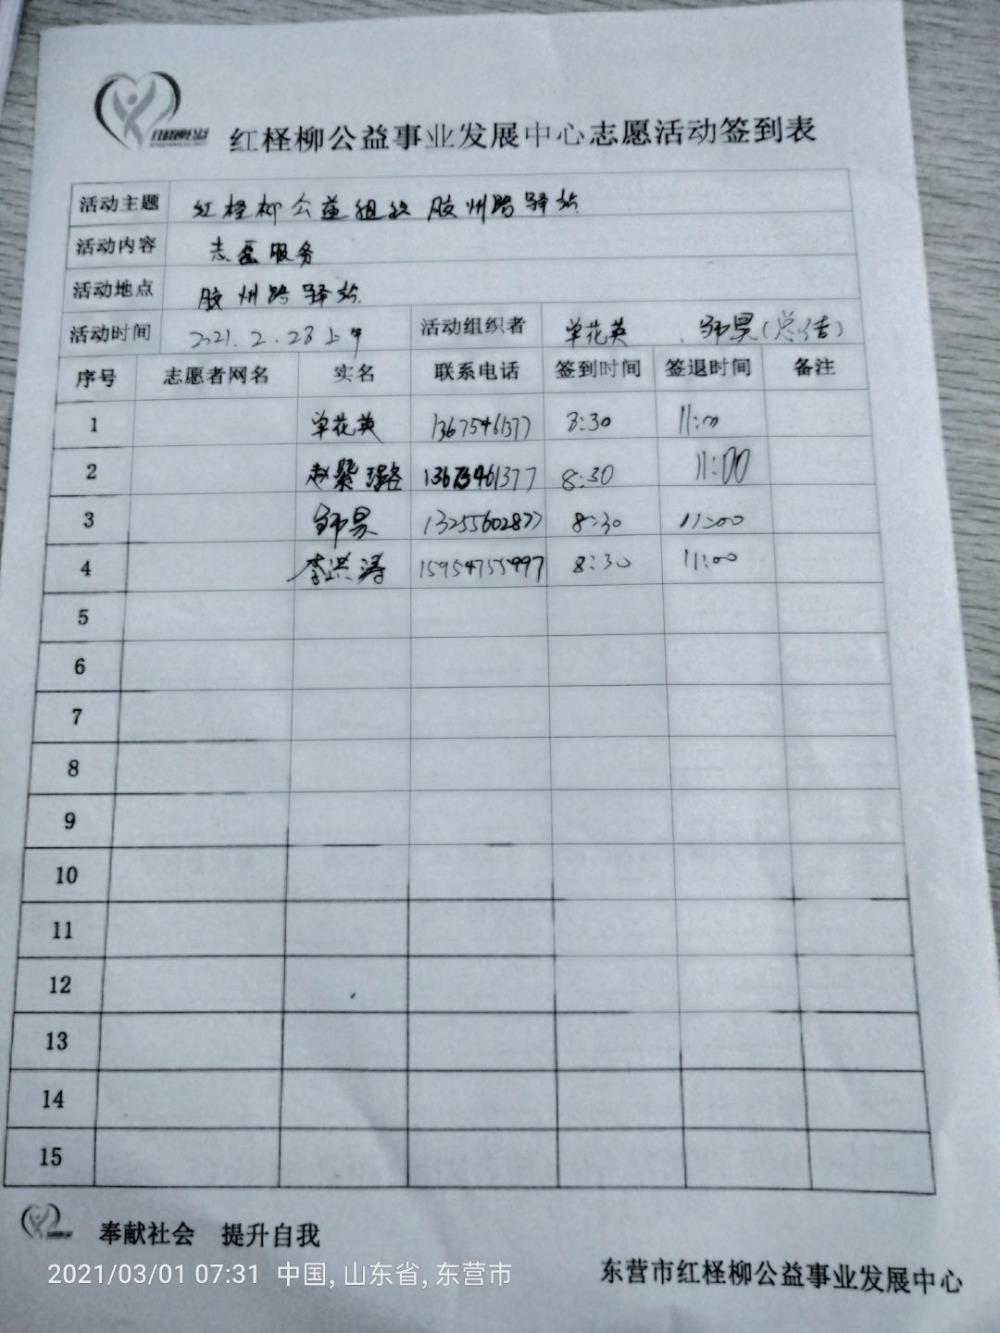 红柽柳公益事业发展中心志愿活动签到表
活动主题 红柽柳公益组织 胶州路驿站
活动内容 志愿服务
活动地点 胶州路驿站
活动时间 2021.2.28上午 活动组织者 单花英 、邹昊(总结)
序号 志愿者网名 实名 联系电话 签到时间 签退时间 备注
1 单花英 13675461377 8:30 11:00
2 赵紫璐 13675461377 8:30 11:00
3 邹昊 13255602877 8:30 11:00
4 李洪涛 15954755997 8:30 11:00
5
6
7
8
9
10
11
12
13
14
15
奉献社会 提升自我
2021/03/01 07:31 中国, 山东省, 东营市
东营市红柽柳公益事业发展中心